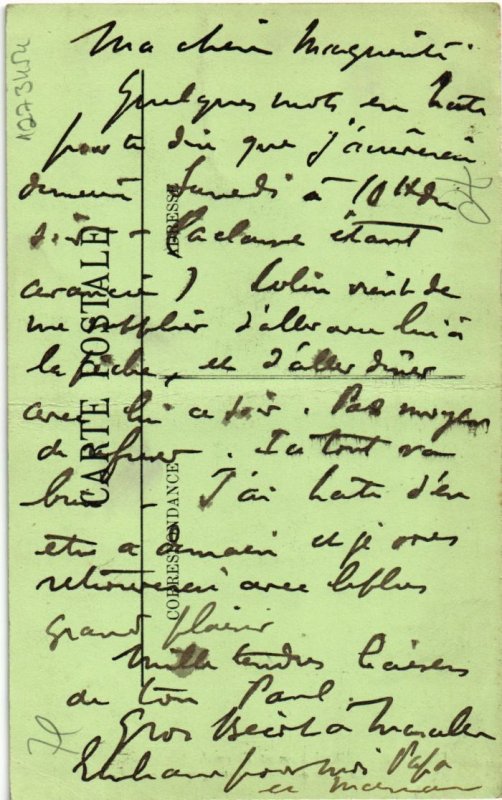 Ma chère Marguerite
Quelques mots en hâte
pour te dire que j'arriverai
demain Samedi à 10H du
soir
étant
) Colin vient de
me supplier d'aller avec lui à
la pêche, et d'aller dîner
avec lui ce soir. Pas moyen
de refuser. Ici tout va
bien - J'ai hâte d'en
être à demain et je vous
retrouverai avec le plus
grand plaisir
Mille tendres baisers
de ton Paul.
Gros
Embrasse pour moi Papa
et maman
CARTE POSTALE
ADRESSE
CORRESPONDANCE